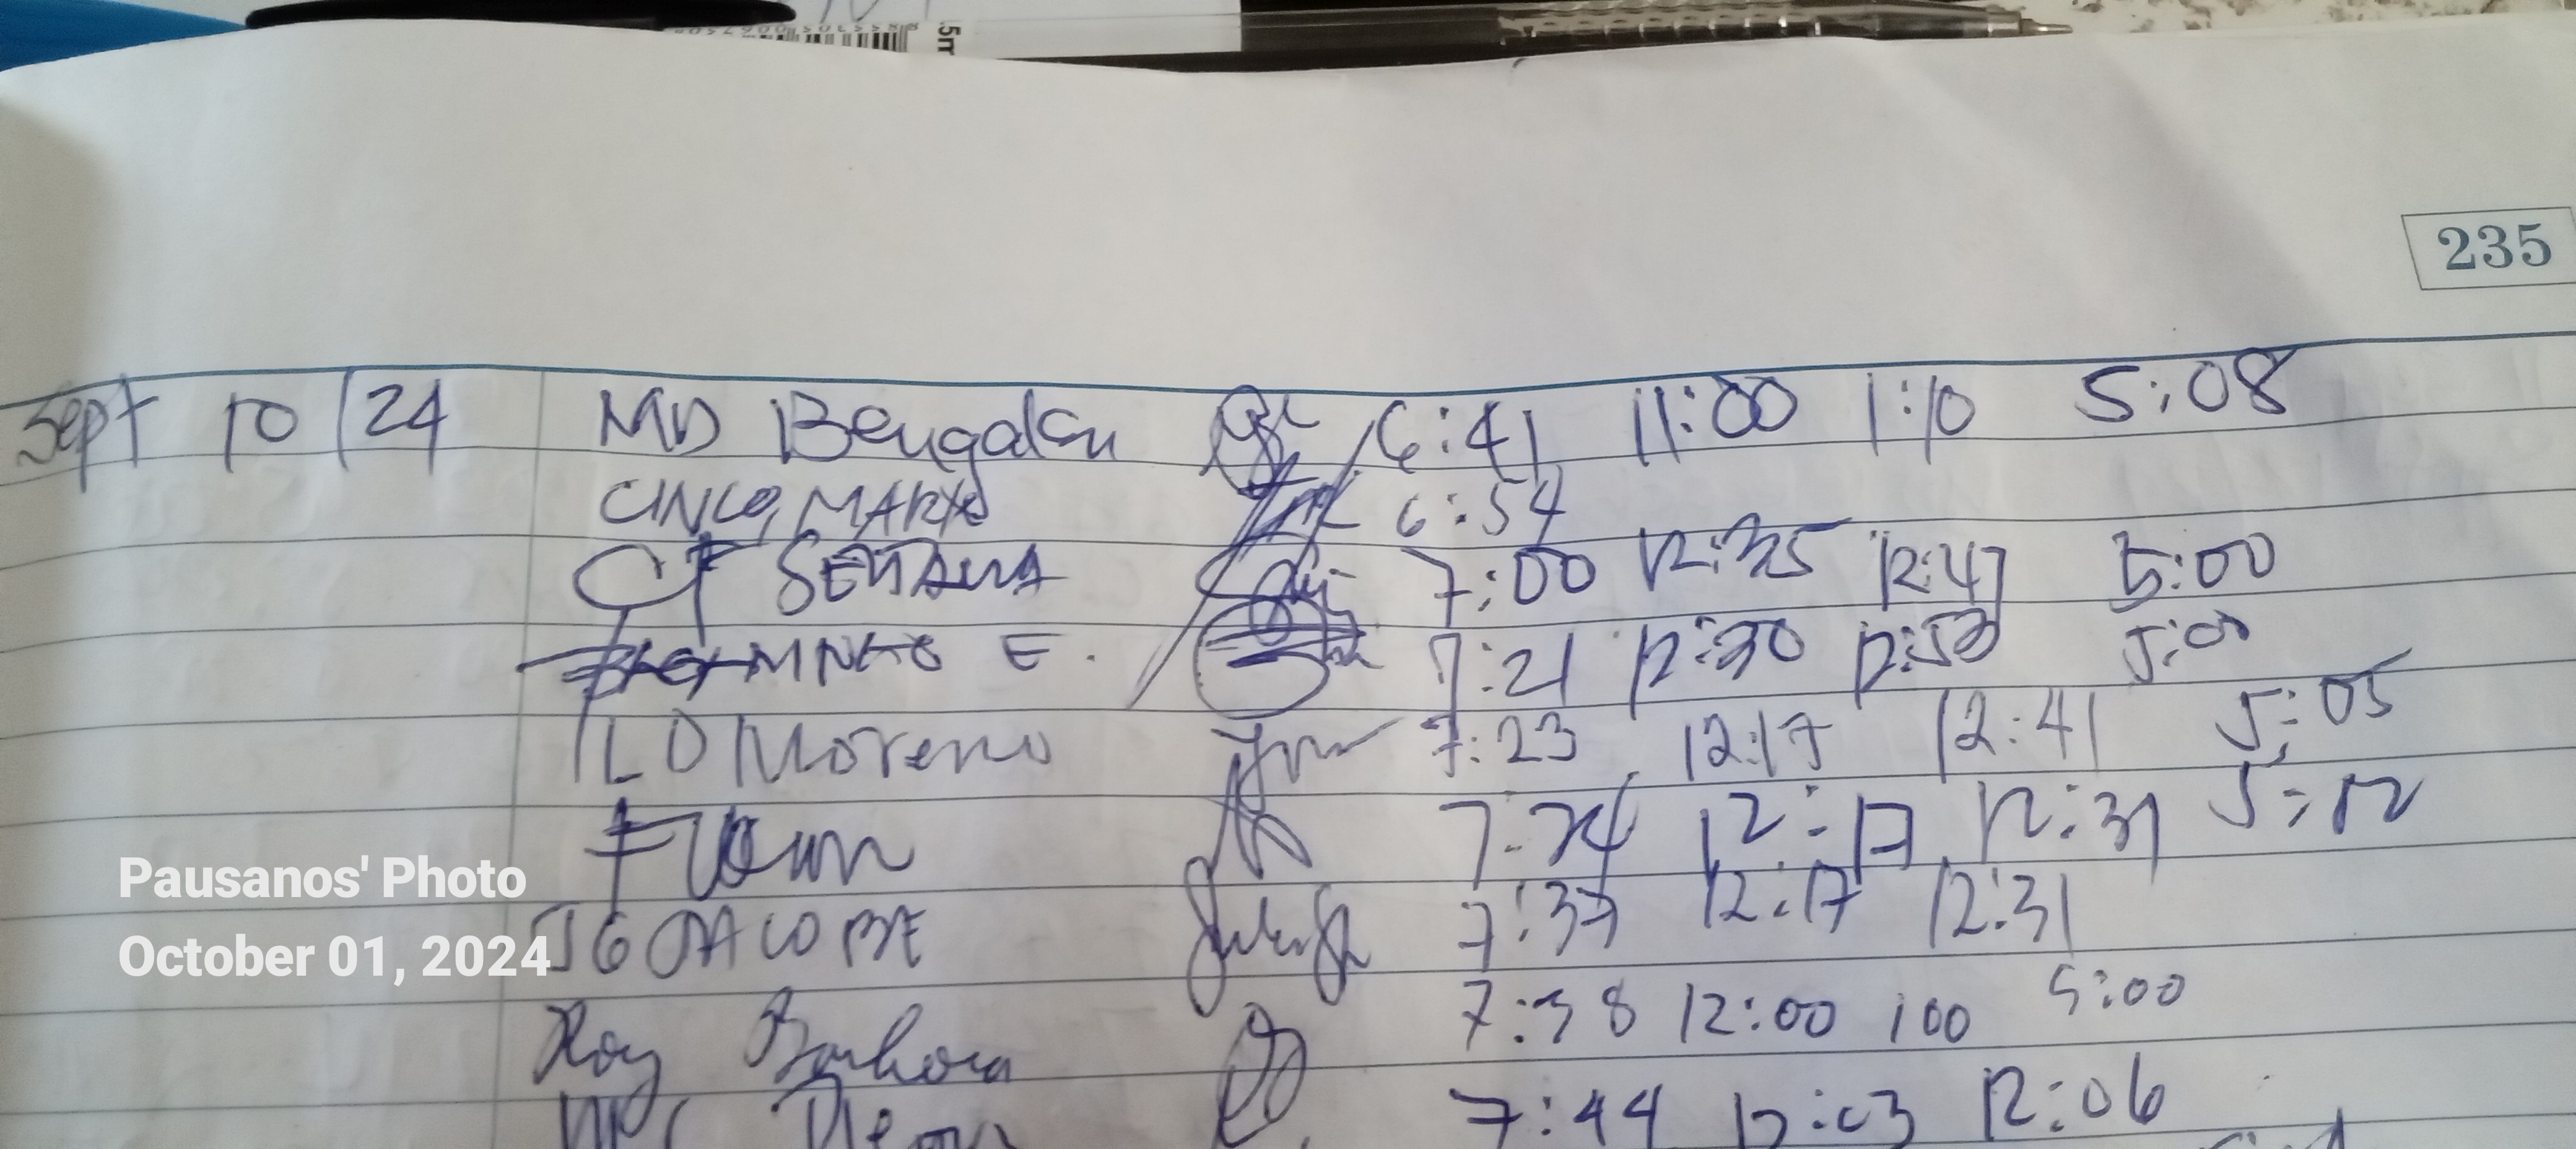 5m
235
Sept 10/24 MD Bengalon 6:41 11:00 1:10 5:08
CINCO, MARX 6:54
CF SENTANA 7:00 12:35 12:47 5:00
E. 7:21 12:30 12:53 5:00
LD Moreno 7:23 12:17 12:41 5:05
7:34 12:17 12:31 5:12
JG JACOBE 7:37 12:17 12:31
Roy Barbosa 7:38 12:00 100 5:00
7:44 12:03 12:06
Pausanos' Photo
October 01, 2024